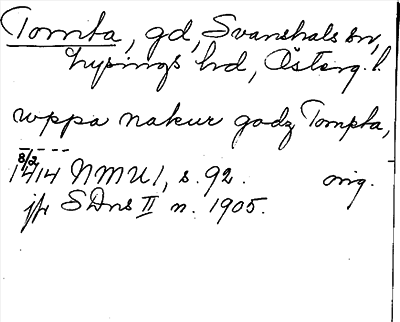 Tomta, gd, Svanshals sn,
Lysings hd, Österg. l.
uppa nakur godz Tompta,
8/2 1414 NMU 1, s. 92. orig.
jfr SDns II n. 1905.